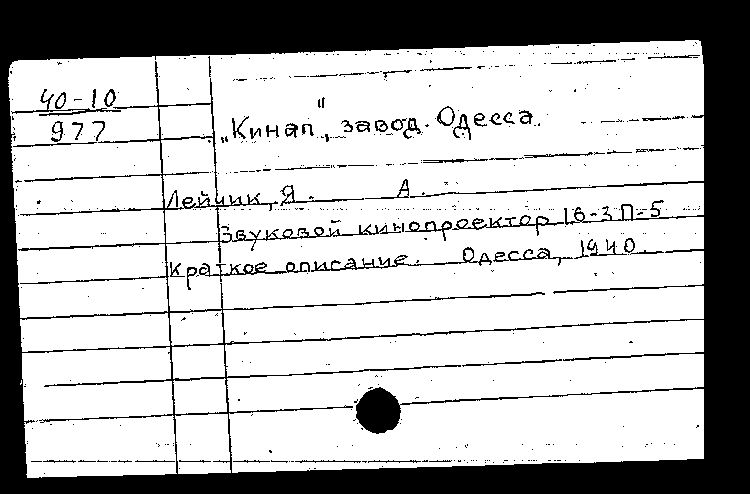 40-10
977
„Кинап", завод. Одесса.
Лейчик, Я. А.
Звуковой кинопроектор 16-ЗП-5
Краткое описание. Одесса, 1940.